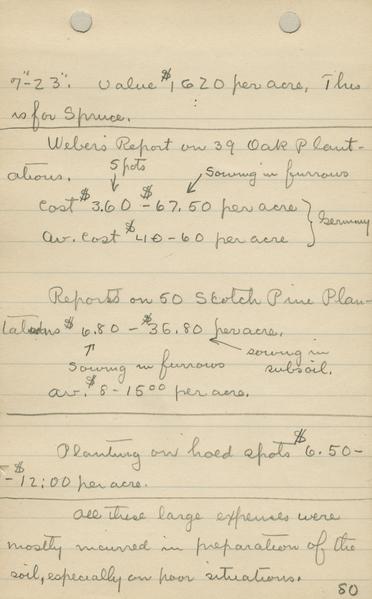 7"-23". Value $1620 per acre, This
is for Spruce.
Weber's Report on 39 Oak Plant-
ations.
Spots
Sowing in furrows
Cost $3.60 - $67.50 per acre
Av. Cost $40-60 per acre
Germany
Reports on 50 Scotch Pine Plan-
tations $6.80 - $36.80 per acre.
Sowing in furrows
sowing in
subsoil.
av. $8-15 00 per acre.
Planting on hoed spots $6.50-
-$12:00 per acre.
All these large expenses were
mostly incurred in preparation of the
soil, especially on poor situations.
80